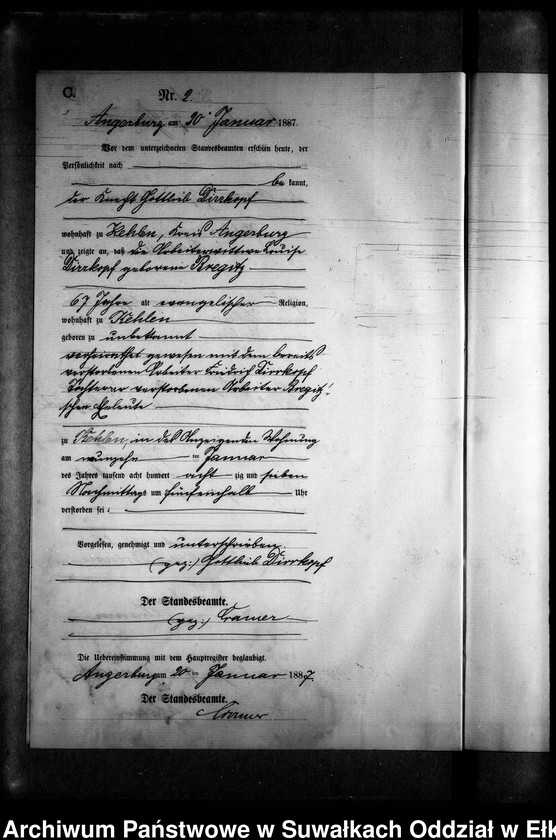 C.
Nr. 2
Angerburg am 20 Januar 1887.
Vor dem unterzeichneten Standesbeamten erschien heute, der
Persönlichkeit nach
be kannt,
der Knecht Gottlieb Dirrkopf
wohnhaft zu Kehlen, Kreis Angerburg
und zeigte an, daß die Arbeiterwittwe Louise
Dirrkopf geborene Bregitz
67 Jahre alt evangelischer Religion,
wohnhaft zu Kehlen
geboren zu unbekannt
verheirathet gewesen mit dem bereits
verstorbenen Arbeiter Friedrich Dirrkopf
Tochter der verstorbenen Arbeiter Bregitz'
schen Eheleute
zu Kehlen, in des Anzeigenden Wohnung
am neunzehn ten Januar
des Jahres tausend acht hundert acht zig und sieben
Nachmittags um fünfeinhalb Uhr
verstorben sei
Vorgelesen, genehmigt und unterschrieben
(gez:) Gottlieb Dirrkopf
Der Standesbeamte.
(gez:) Cramer
Die Uebereinstimmung mit dem Hauptregister beglaubigt.
Angerburg am 20 ten Januar 1887.
Der Standesbeamte.
Cramer
Archiwum Państwowe w Suwałkach Oddział w Ełk